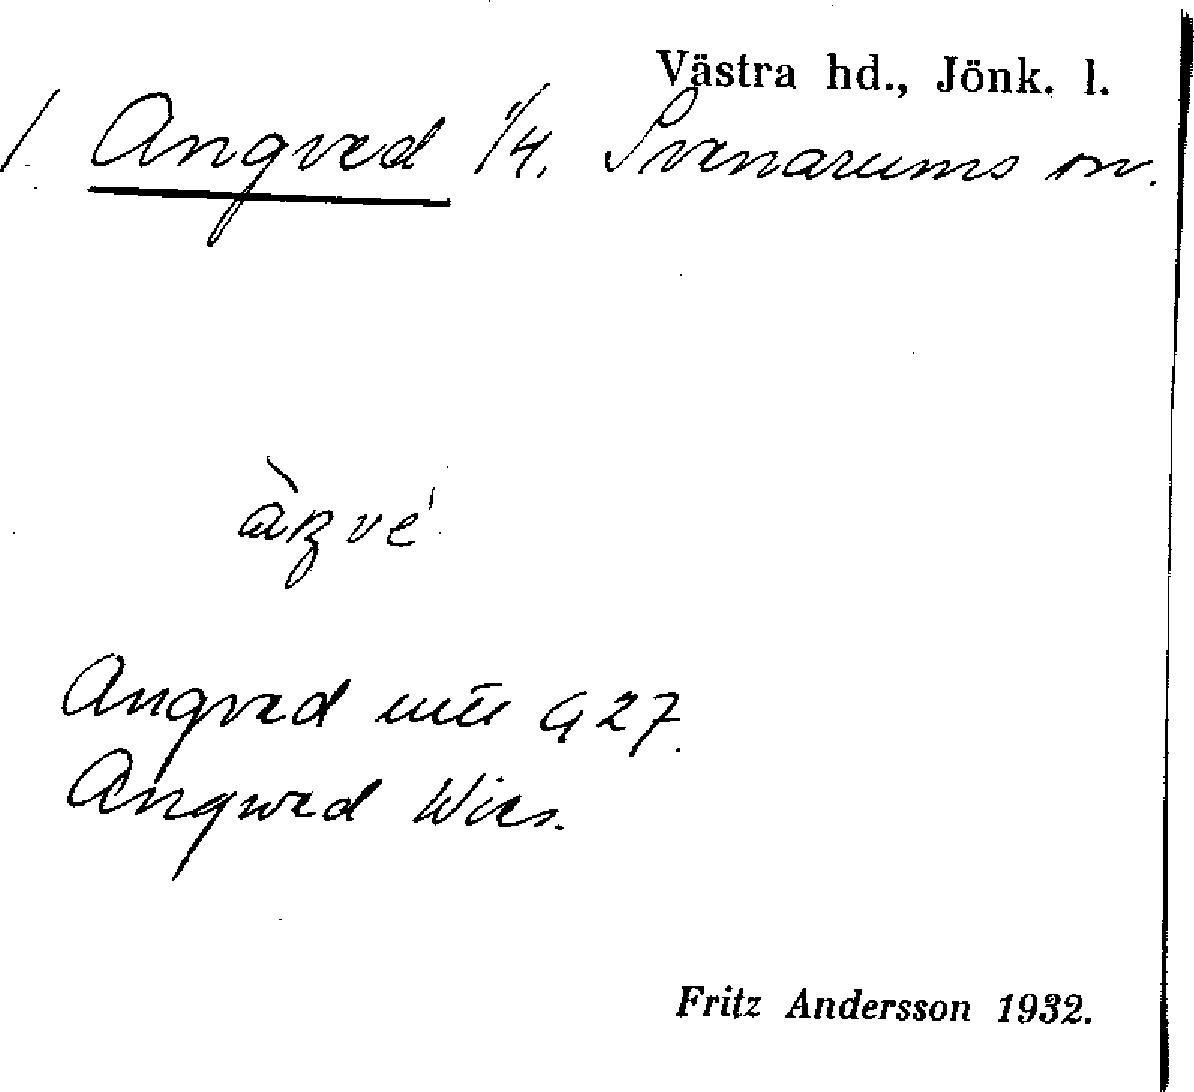 Västra hd., Jönk. l.
1. Angved 1/4. Svenarums sn.
Angved G 27.
Angwed Wies.
Fritz Andersson 1932.